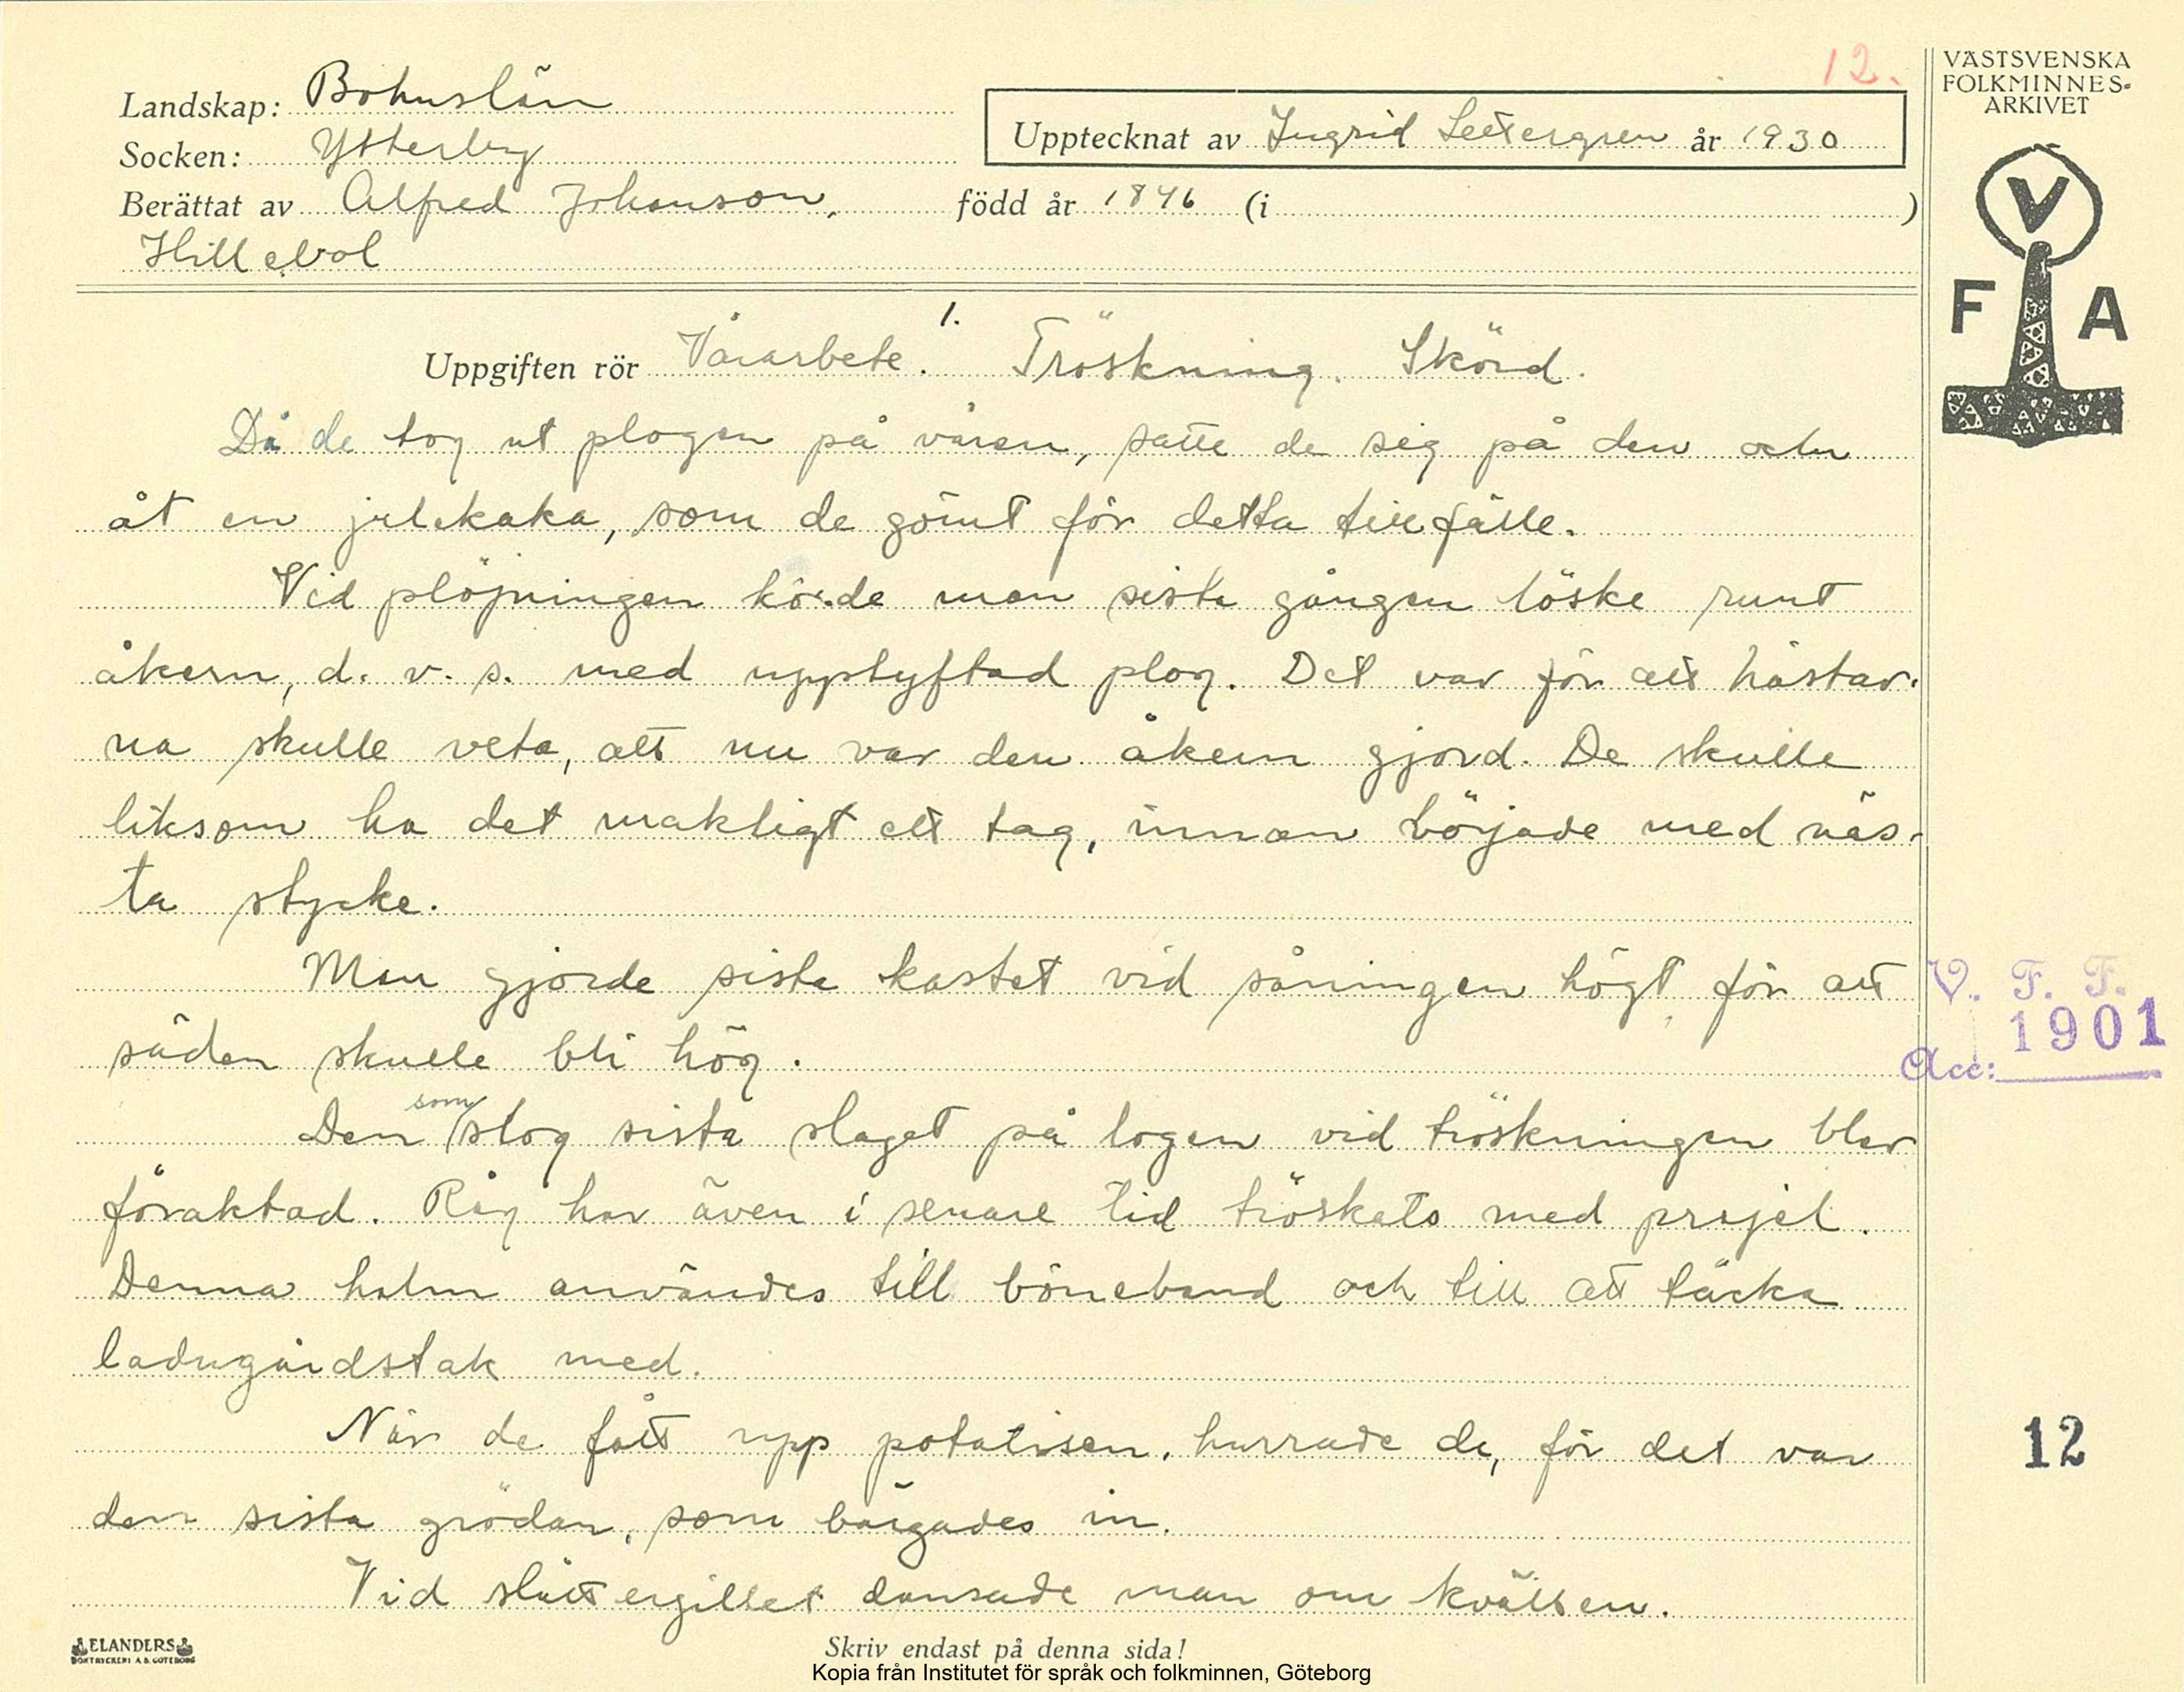 12.
VÄSTSVENSKA
FOLKMINNES-
ARKIVET
Landskap: Bohuslän
Upptecknat av Ingrid Settergren år 1930
Socken: Ytterby
Berättat av Alfred Johanson, född år 1846 (i )
Hillebol
V
F A
1.
Uppgiften rör Vårarbete. Tröskning. Skörd.
Då de tog ut plogen på våren, satte de sig på den och
åt en julekaka, som de gömt för detta tillfälle.
Vid plöjningen körde man sista gången löske runt
åkern, d. v. s. med upplyftad plog. Det var för att hästar-
na skulle veta, att nu var den åkern gjord. De skulle
liksom ha det makligt ett tag, innan började med näs-
ta stycke.
Man gjorde sista kastet vid såningen högt för att
säden skulle bli hög.
V. F. F.
1901
Acc:
som
Den slog sista slaget på logen vid tröskningen blev
föraktad. Råg har även i senare tid tröskats med prejel.
Denna halm användes till böneband och till att täcka
ladugårdstak med.
När de fått upp potatisen, hurrade de, för det var
den sista grödan, som bärgades in.
12
Vid slåttergillet dansade man om kvällen.
ELANDERS
BOKTRYCKERI A.B. GÖTEBORG
Skriv endast på denna sida!
Kopia från Institutet för språk och folkminnen, Göteborg